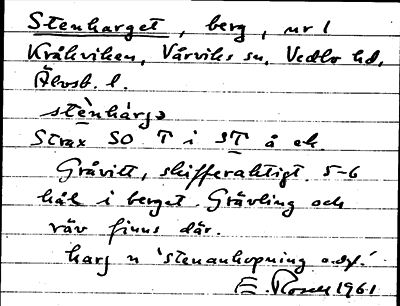 Stenharget, berg, nr 1
Kråkviken, Vårviks sn, Vedbo hd,
Älvsb. l.
stènhárjə
Strax SO T i ST å ek.
Gråvitt, skifferaktigt. 5-6
hål i berget. Grävling och
räv finns där.
harj n 'stenanhopning o.dyl.'
E. Rosell 1961